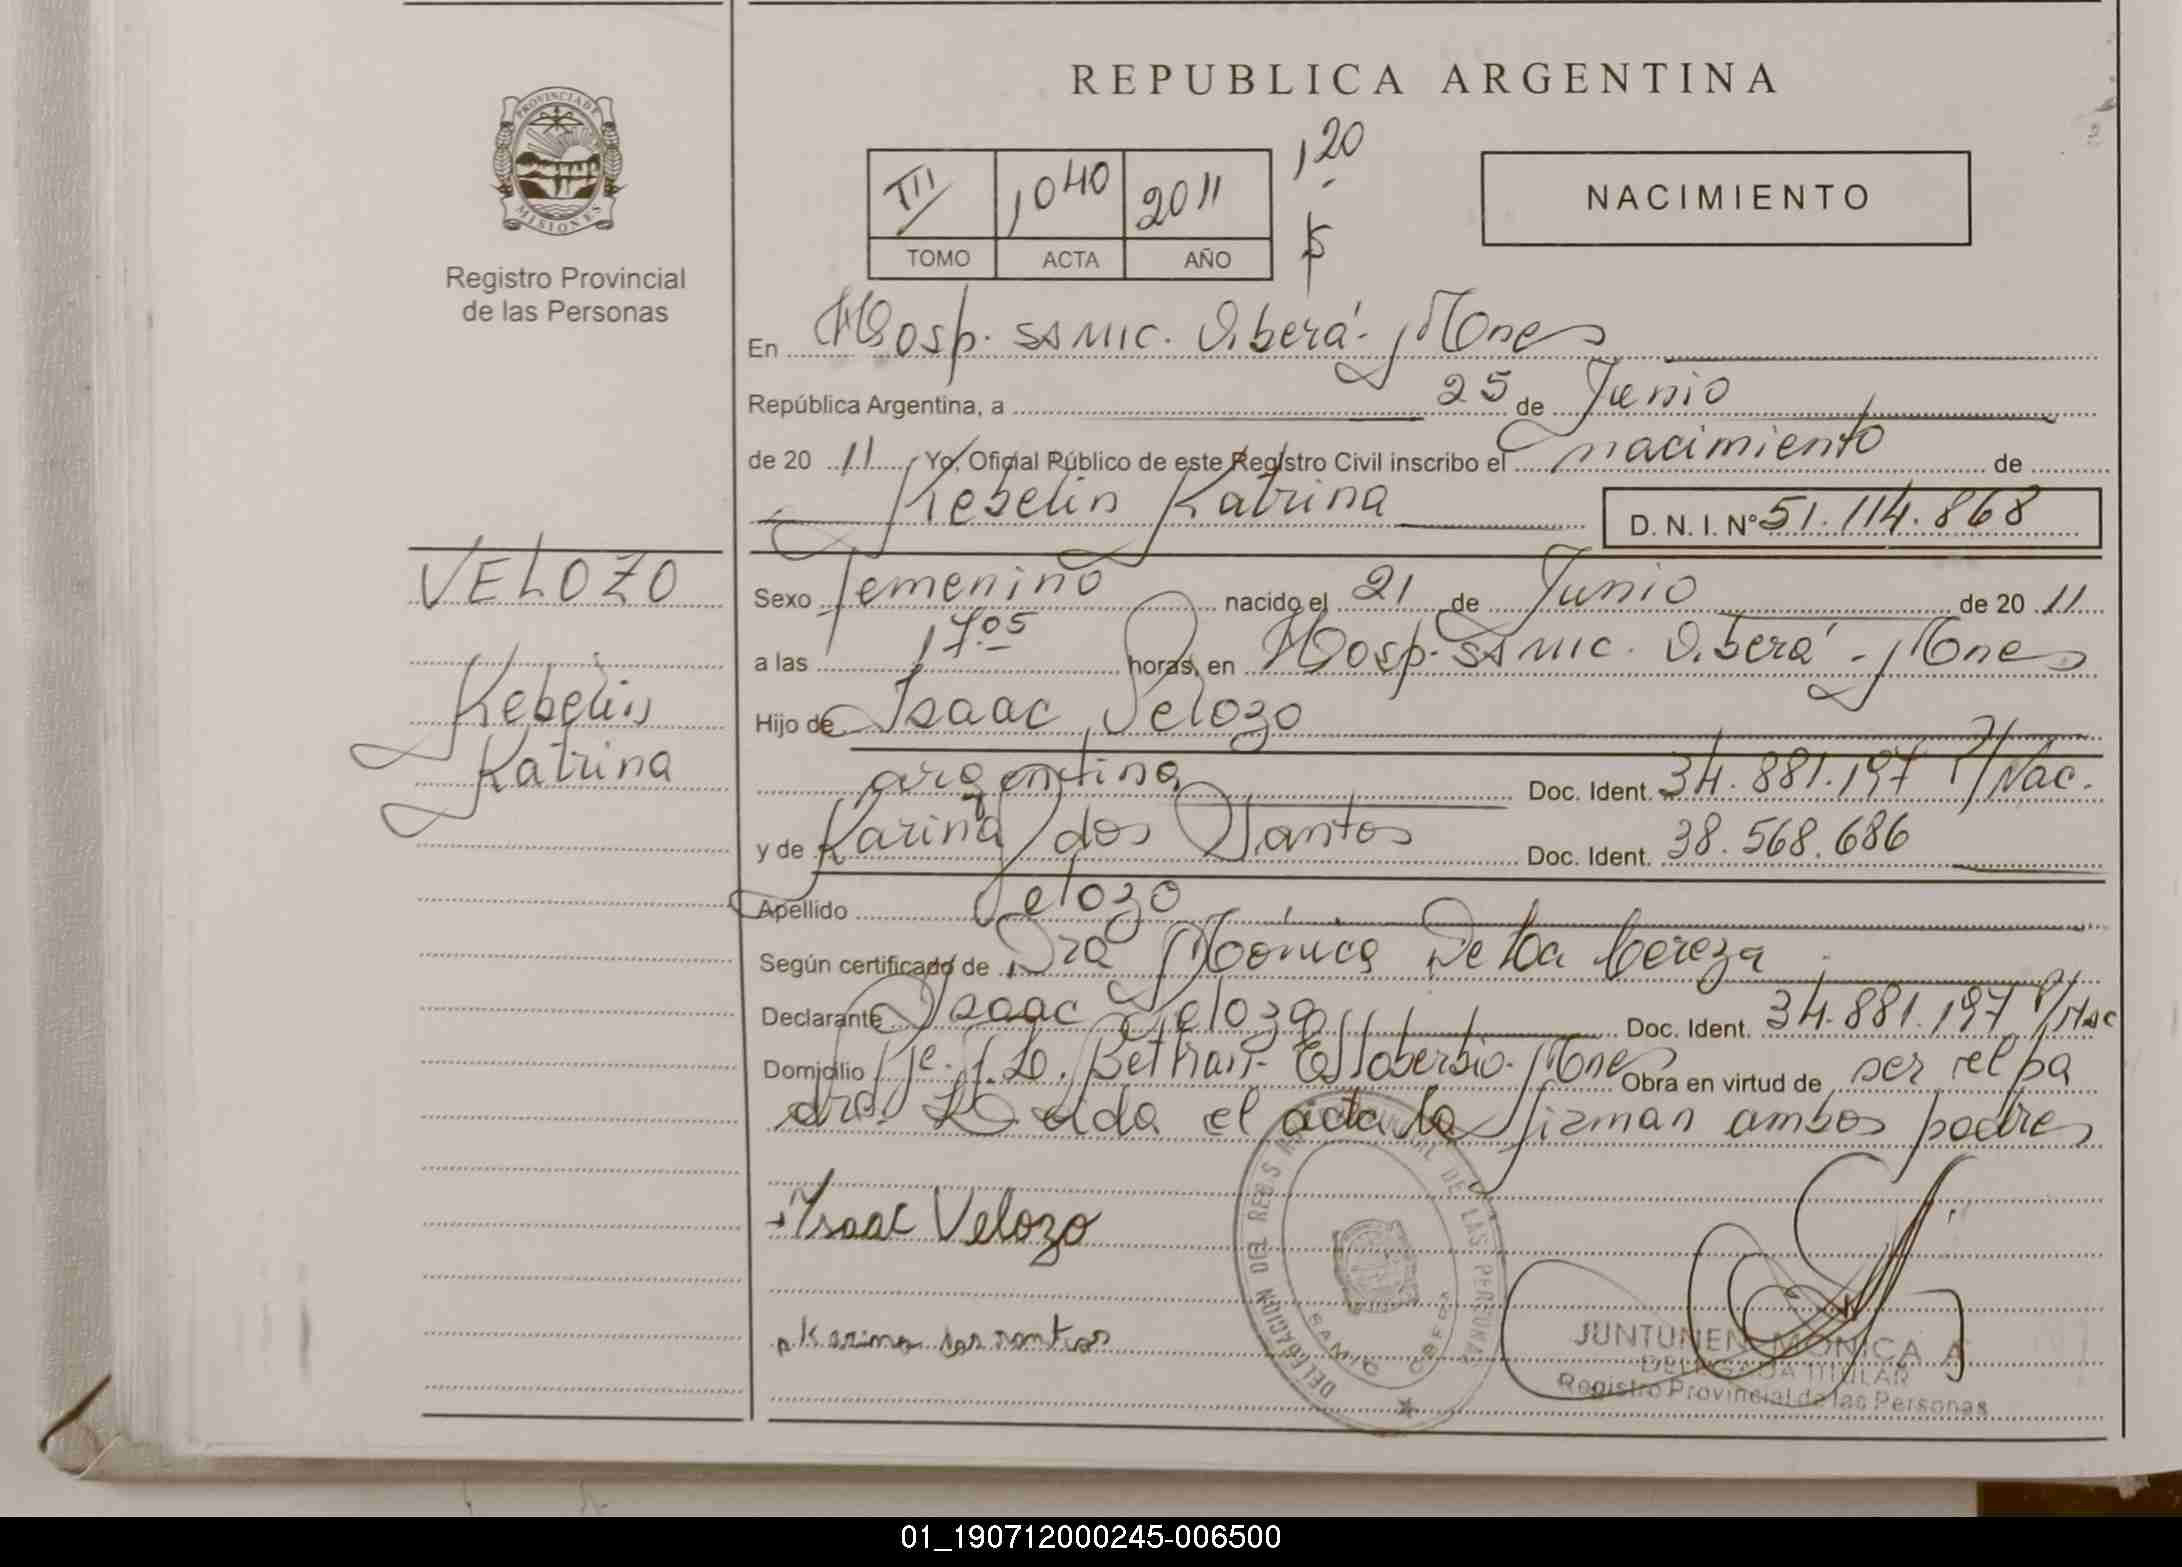 PROVINCIA DE
MISIONES
Registro Provincial
de las Personas
VELOZO
Kebelin
Katrina
REPUBLICA ARGENTINA
III 1040 2011 120
TOMO ACTA AÑO
NACIMIENTO
En Hosp. SAMIC. Oberá - Mnes
República Argentina, a 25 de Junio
de 20 11 Yo, Oficial Público de este Registro Civil inscribo el nacimiento de
Kebelin Katrina D. N. I. N° 51.114.868
Sexo femenino nacido el 21 de Junio de 20 11
a las 17.05 horas, en Hosp. SAMIC. Oberá - Mnes
Hijo de Isaac Velozo
argentina Doc. Ident. 34.881.197 P/Nac.
y de Karina dos Santos Doc. Ident. 38.568.686
Apellido Velozo
Según certificado de Dra Mónica De
Declarante Isaac Velozo Doc. Ident. 34.881.197 P/Nac
Domicilio Beltran - Mnes Obra en virtud de ser el pa
dre. Leida el acta la firman ambos padres
Isaac Velozo
Karina dos santos
DELEGACION DEL REG. DE LAS PERSONAS
JUNTUNEN MONICA A
DELEGADA TITULAR
Registro Provincial de las Personas
01_190712000245-006500